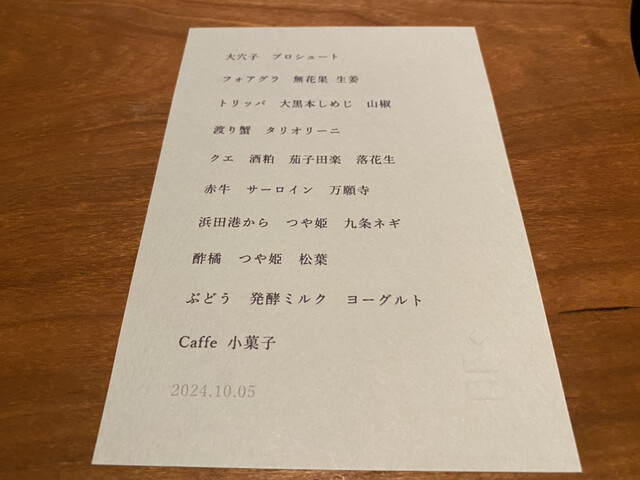 大穴子 プロシュート
フォアグラ 無花果 生姜
トリッパ 大黒本しめじ 山椒
渡り蟹 タリオリーニ
クエ 酒粕 茄子田楽 落花生
赤牛 サーロイン 万願寺
浜田港から つや姫 九条ネギ
酢橘 つや姫 松葉
ぶどう 発酵ミルク ヨーグルト
Caffe 小菓子
2024.10.05